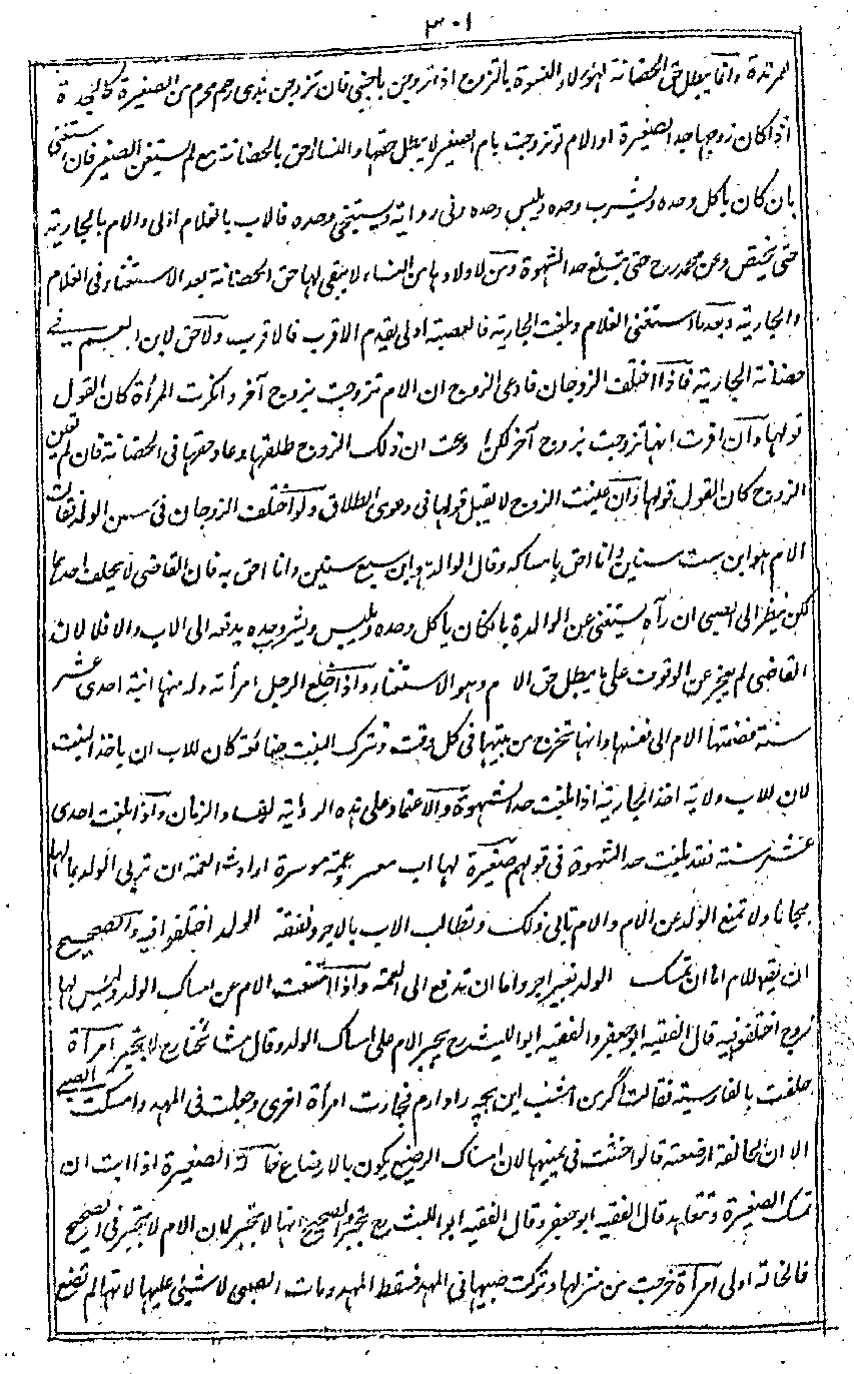 ٣٠١
المرتدة وانما يبطل حق الحضانة لهؤلاء النسوة بالتزوج اذا تزوجن باجنبي فان تزوجن بذى رحم محرم من الصغيرة كالجدة
اذا كان زوجها جد الصغيرة او الام لو تزوجت بام الصغير لا يبطل حقها والنساء احق بالحضانة مع لم يستغن الصغير فان استغنى
بان كان ياكل وحده ويشرب وحده ويلبس وحده وفى رواية ويستنجى وحده فالاب بالغلام اولى والام بالجارية
حتى تحيض وعن محمد رح حتى تبلغ حد الشهوة ومن لا ولاد لها من النساء لا يبقى لها حق الحضانة بعد الاستغناء فى الغلام
والجارية وبعد ما استغنى الغلام وبلغت الجارية فالعصبة اولى يقدم الاقرب فالاقرب ولا حق لابن العم فى
حضانة الجارية فاذا اختلف الزوجان فادعى الزوج ان الام تزوجت بزوج آخر وانكرت المرأة كان القول
قولها وان اقرت انها تزوجت بزوج آخر لكن ادعت ان ذلك الزوج طلقها وعاد حقها فى الحضانة فان لم تعين
الزوج كان القول قولها وان عينت الزوج لا يقبل قولها فى دعوى الطلاق ولو اختلف الزوجان فى سن الولد فقالت
الام هو ابن ست سنين وانا احق بامساكه وقال الوالد هو ابن سبع سنين وانا احق به فان القاضى لا يحلف احدهما
لكن ينظر الى الصبى ان رآه يستغنى عن الوالدة بان كان ياكل وحده ويلبس ويشرب وحده يدفعه الى الاب والا فلا لان
القاضى لم يعجز عن الوقوف على ما يبطل حق الام وهو الاستغناء واذا خلع الرجل امرأته وله منها ابنة احدى عشر
سنة فضمتها الام الى نفسها وانها تخرج من بيتها فى كل وقت وتترك البنت ضائعة كان للاب ان ياخذ البنت
لان للاب ولاية اخذ الجارية اذا بلغت حد الشهوة والاعتماد على هذه الرواية لفساد الزمان واذا بلغت احدى
عشر سنة فقد بلغت حد الشهوة فى قولهم صغيرة لها اب معسر وعمة موسرة ارادت العمة ان تربى الولد بمالها
مجانا ولا تمنع الولد عن الام والام تابى ذلك وتطالب الاب بالاجر ونفقة الولد اختلفوا فيه والصحيح
ان يقال للام اما ان تمسك الولد بغير اجر واما ان تدفع الى العمة واذا امتنعت الام عن امساك الولد وليس لها
زوج اختلفوا فيه قال الفقيه ابو جعفر والفقيه ابو الليث رح يجبر الام على امساك الولد وقال مشائخنا رح لا تجبر امرأة
حلفت بالفارسية فقالت اگر من امشب اين بچه را دارم فجاءت امرأة اخرى وجعلت فى المهد وامسكت الصبى
الا ان الحالفة ارضعته قالوا حنثت فى يمينها لان امساك الرضيع يكون بالارضاع خالة الصغيرة اذا ابت ان
تمسك الصغيرة وتتعاهد قال الفقيه ابو جعفر وقال الفقيه ابو الليث رح تجبر والصحيح انها لا تجبر لان الام لا تجبر فى الصحيح
فالخالة اولى امرأة خرجت من منزلها وتركت صبيها فى المهد فسقط المهد ومات الصبى لا شيئ عليها لانها لم تضيع